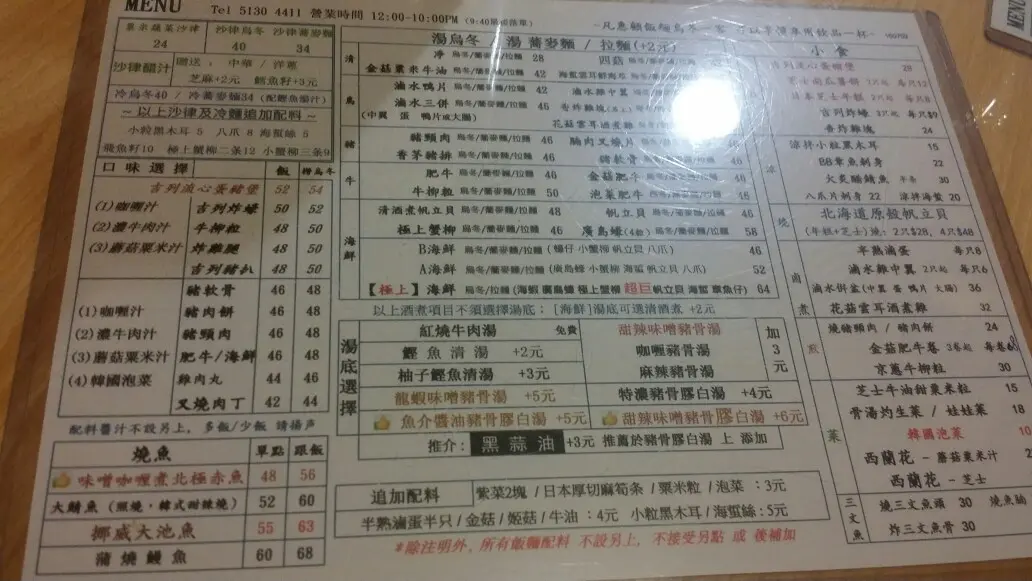 MENU Tel 5130 4411 營業時間 12:00-10:00PM
MENU
粟米蔬菜沙律 24
沙律烏冬 40
沙律蕎麥麵 34
沙律醬汁 贈送：中華 / 洋蔥
芝麻+2元 鱈魚籽+3元
冷烏冬40 / 冷蕎麥麵34 (配鰹魚醬汁)
~ 以上沙律及冷麵追加配料 ~
小粒黑木耳 5 八爪 8 海蜇絲 5
飛魚籽10 極上蟹柳二条12 小蟹柳三条9
口味選擇 飯 撈烏冬
吉列流心蛋豬堡 52 54
(1)咖喱汁 吉列炸蠔 50 52
(2)濃牛肉汁 牛柳粒 48 50
(3)蘑菇粟米汁 炸雞腿 48 50
吉列豬扒 48 50
豬軟骨 46 48
(1)咖喱汁 豬肉餅 46 48
(2)濃牛肉汁 豬頸肉 46 48
(3)蘑菇粟米汁 肥牛/海鮮 46 48
(4)韓國泡菜 雞肉丸 44 46
叉燒肉丁 42 44
配料醬汁不設另上, 多飯/少飯 請揚声
燒魚 單點 跟飯
味噌咖喱煮北極赤魚 48 56
大鯖魚 (照燒,韓式甜辣燒) 52 60
挪威大池魚 55 63
蒲燒鰻魚 60 68
湯烏冬 / 湯蕎麥麵 / 拉麵(+2元)
清
淨 烏冬/蕎麥麵/拉麵 28
四菇 烏冬/蕎麥麵/拉麵
金菇粟米牛油 烏冬/蕎麥麵/拉麵 42
滷水鴨片 烏冬/蕎麥麵/拉麵 42
滷水三併 烏冬/蕎麥麵/拉麵 45
花菇雲耳酒煮雞 烏冬/蕎麥麵/拉麵
豬
豬頸肉 烏冬/蕎麥麵/拉麵 46
胸肉叉燒片 烏冬/蕎麥麵/拉麵
香茅豬排 烏冬/蕎麥麵/拉麵 46
豬軟骨 烏冬/蕎麥麵/拉麵
牛
肥牛 烏冬/蕎麥麵/拉麵 46
金菇肥牛 烏冬/蕎麥麵/拉麵
牛柳粒 烏冬/蕎麥麵/拉麵 50
泡菜肥牛 烏冬/蕎麥麵/拉麵
海鮮
清酒煮帆立貝 烏冬/蕎麥麵/拉麵 48
帆立貝 烏冬/蕎麥麵/拉麵 46
極上蟹柳 烏冬/蕎麥麵/拉麵 46
廣島蠔(4粒) 烏冬/蕎麥麵/拉麵 58
B海鮮 烏冬/蕎麥麵/拉麵 (蝦仔 小蟹柳 帆立貝 八爪) 46
A海鮮 烏冬/蕎麥麵/拉麵 (廣島蠔 小蟹柳 海蜇 帆立貝 八爪) 52
【極上】海鮮 烏冬/拉麵 (海蝦 廣島蠔 極上蟹柳 超巨帆立貝 海蜇 章魚仔) 64
以上酒煮項目不須選擇湯底; [海鮮]湯底可選清酒煮 +2元
湯底選擇
紅燒牛肉湯 免費
甜辣味噌豬骨湯
鰹魚清湯 +2元
咖喱豬骨湯
加3元
柚子鰹魚清湯 +3元
麻辣豬骨湯
龍蝦味噌豬骨湯 +5元
特濃豬骨膠白湯 +4元
魚介醬油豬骨膠白湯 +5元
甜辣味噌豬骨膠白湯 +6元
推介: 黑蒜油 +3元 推薦於豬骨膠白湯 上 添加
追加配料 紫菜2塊 / 日本厚切麻筍条 / 粟米粒 / 泡菜 : 3元
半熟滷蛋半只/金菇/姬菇/牛油 : 4元 小粒黑木耳/海蜇絲 : 5元
*除注明外, 所有飯麵配料 不設另上, 不接受另點 或 後補加
小食
吉列流心蛋豬堡 29
日本芝士年糕 2只起 每只8
吉列炸蠔 2只起 每只9
香炸雞塊 24
涼拌小粒黑木耳 15
BB章魚刺身 22
火炙醋鯖魚 半条 30
八爪片刺身 22 涼拌海蜇 20
北海道原殼帆立貝
(年糕+芝士)燒: 2只$28, 4只$48
半熟滷蛋 每只6
滷水雞中翼 2只起 每只6
滷水併盒(中翼 蛋 鴨片 大腸) 36
花菇雲耳酒煮雞 32
燒豬頸肉 / 豬肉餅 24
金菇肥牛卷
京蔥牛柳粒 30
芝士牛油甜粟米粒 15
骨湯灼生菜 / 娃娃菜 18
韓國泡菜 10
西蘭花 - 蘑菇粟米汁
西蘭花 - 芝士
三文魚
燒三文魚頭 30
炸三文魚骨 30